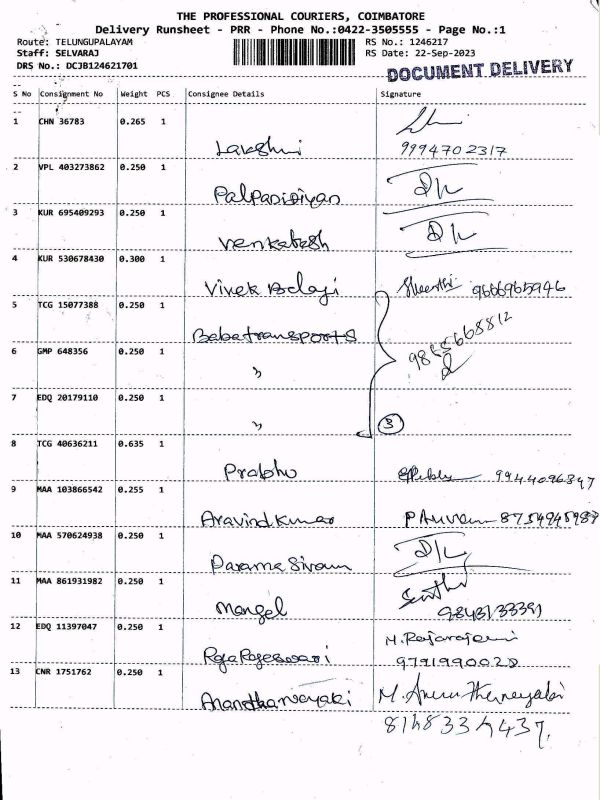 THE PROFESSIONAL COURIERS, COIMBATORE
Delivery Runsheet - PRR - Phone No.:0422-3505555 - Page No.:1
Route: TELUNGUPALAYAM RS No.: 1246217
Staff: SELVARAJ RS Date: 22-Sep-2023
DRS No.: DCJB124621701
DOCUMENT DELIVERY
S No Consignment No Weight PCS Consignee Details Signature
1 CHN 36783 0.265 1
Lakshmi 9994702317
2 VPL 403273862 0.250 1
Palpandiyan
3 KUR 695409293 0.250 1
Venkatesh
4 KUR 530678430 0.300 1
Vivek Balaji 9666965946
5 TCG 15077388 0.250 1
Babatransports
9865668812
6 GMP 648356 0.250 1
"
7 EDQ 20179110 0.250 1
" 3
8 TCG 40636211 0.635 1
Prabhu 9944096347
9 MAA 103866542 0.255 1
Aravind Kumar
10 MAA 570624938 0.250 1
Parama Sivam
11 MAA 861931982 0.250 1
Mangal 9843133391
12 EDQ 11397047 0.250 1 M. Rajarajeswari
Raja Rajeswari 9791990028
13 CNR 1751762 0.250 1
Anandhanayaki
8148334437.